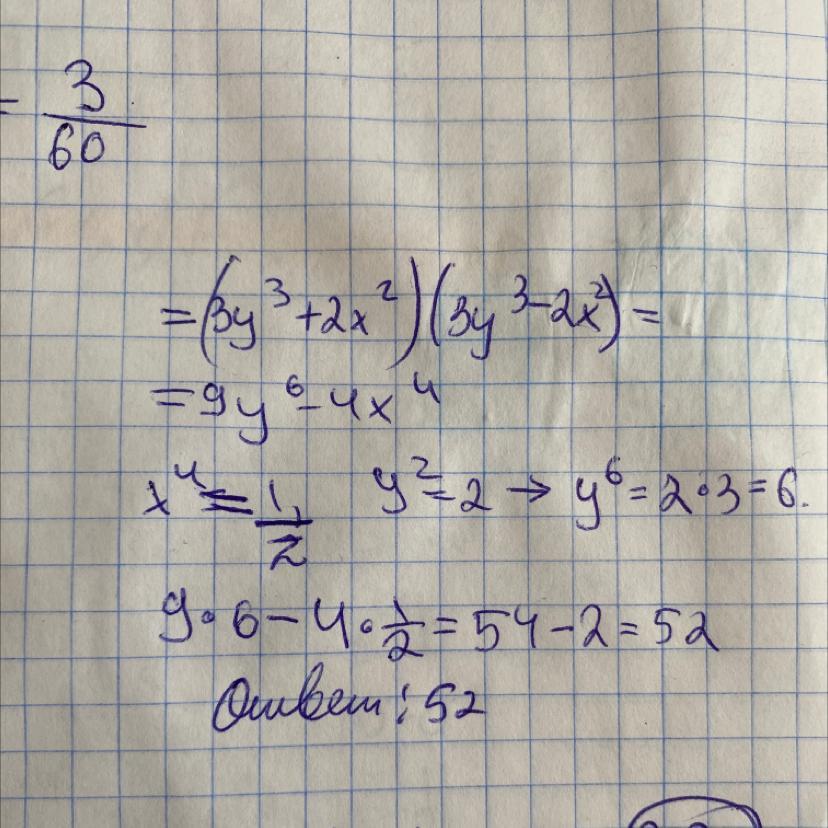 = 3/60
= (3y³ + 2x²)(3y³ - 2x²) =
= 9y⁶ - 4x⁴
x⁴ = 1/2 y² = 2 → y⁶ = 2·3 = 6.
9·6 - 4·1/2 = 54 - 2 = 52
Ответ: 52